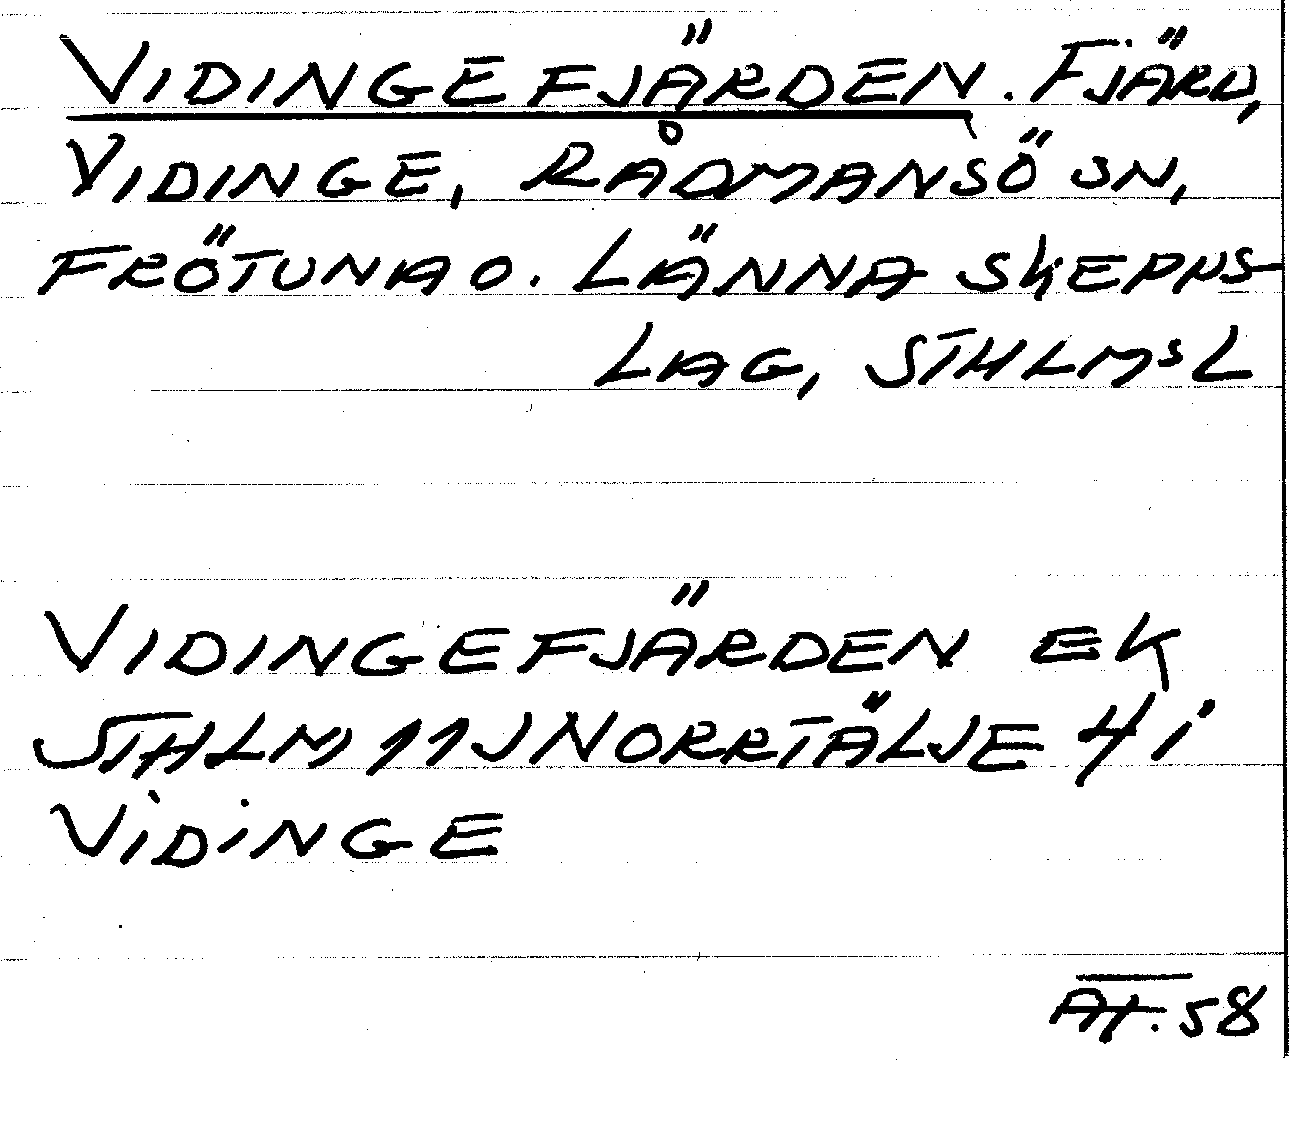 VIDINGEFJÄRDEN. FJÄRD,
VIDINGE, RÅDMANSÖ SN,
FRÖTUNA O. LÄNNA SKEPPS-
LAG, STHLMS L
VIDINGEFJÄRDEN EK
STHLM 11J NORRTÄLJE 4i
VIDINGE
AT. 58